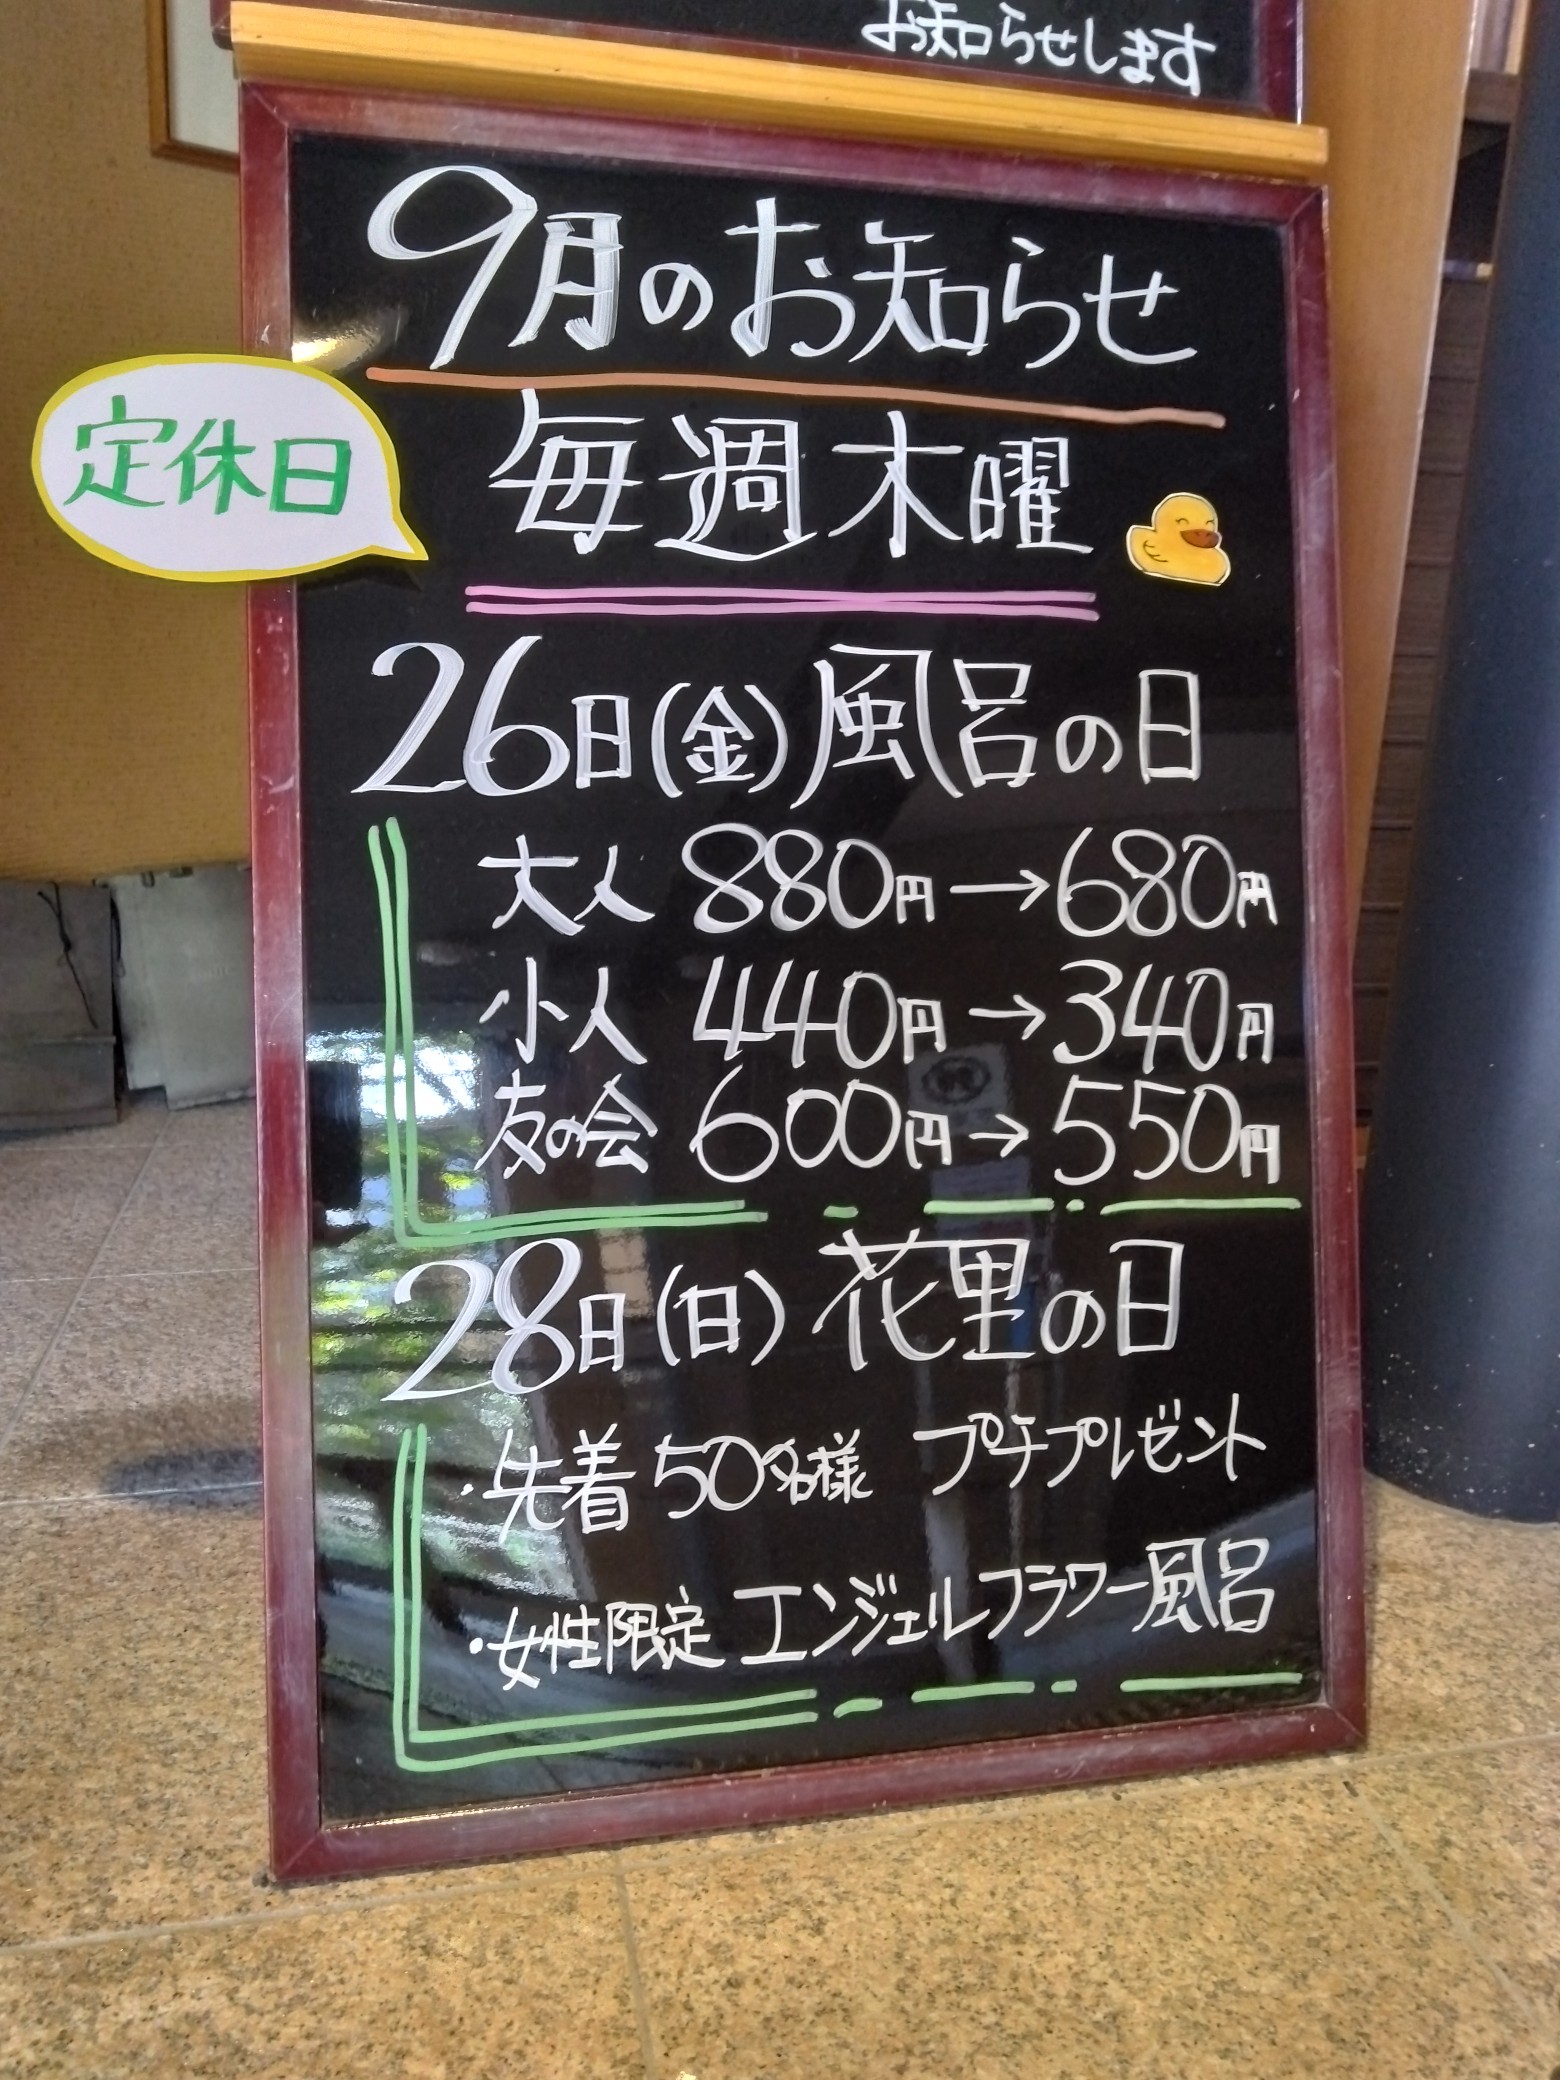 お知らせします
9月のお知らせ
定休日
毎週木曜
26日(金)風呂の日
大人 880円→680円
小人 440円→340円
友の会 600円→550円
28日(日)花里の日
・先着50名様 プチプレゼント
・女性限定 エンジェルフラワー風呂